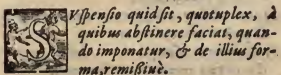 SVspensio quid sit, quotuplex, à
quibus abstinere faciat, quan-
do imponatur, & de illius for-
ma, remissiuè.